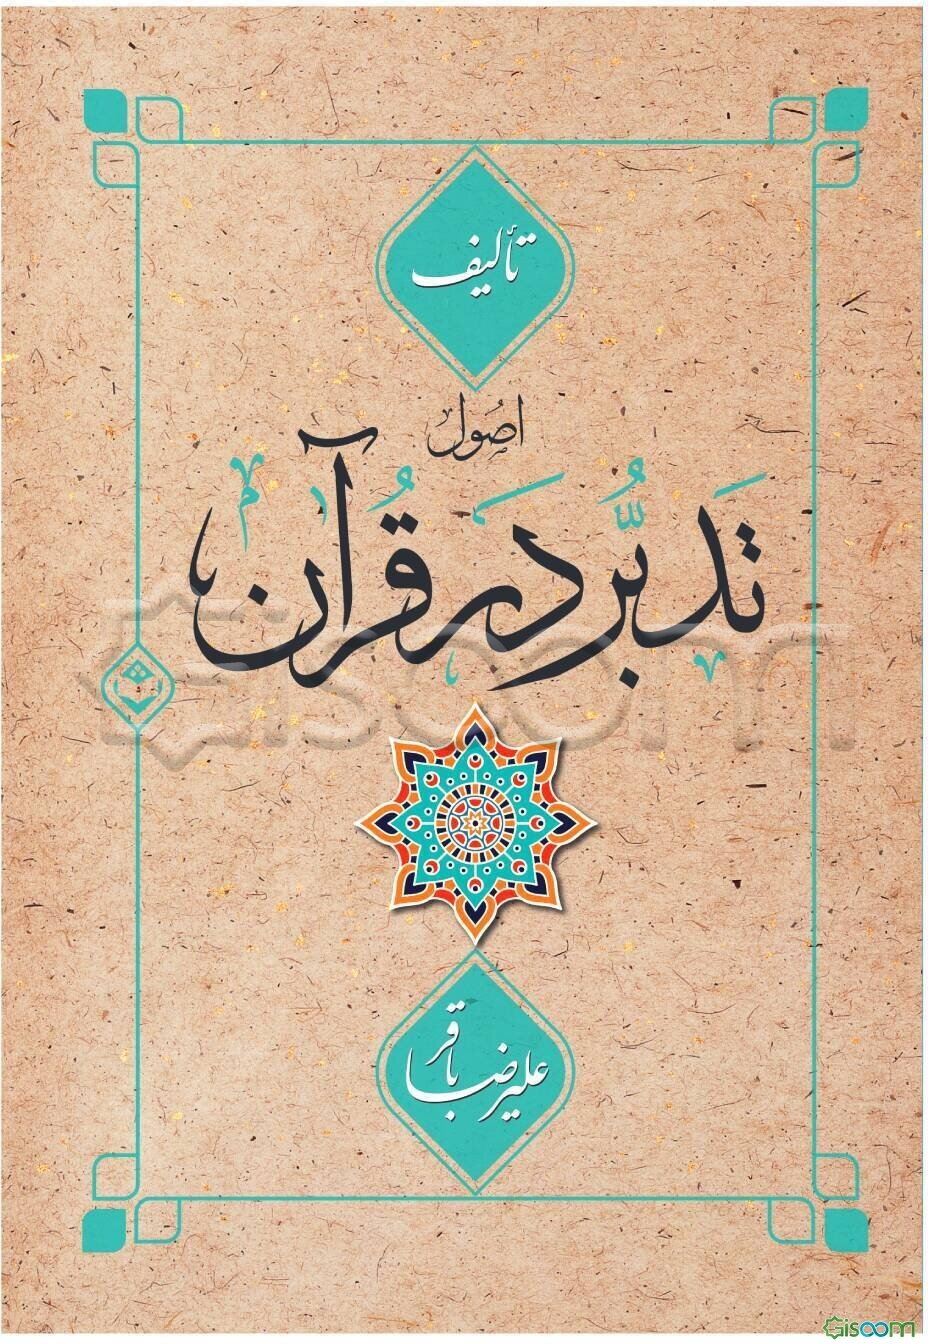 تألیف
اصول
تدبُّر در قُرآن
Gisoom
علیرضا باقر
Gisoom